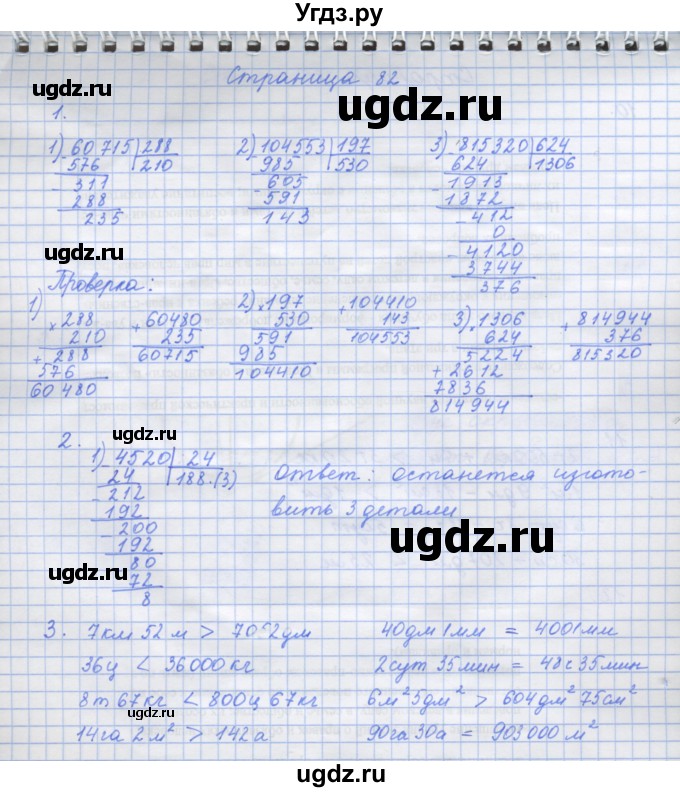 Угдз.ру
Страница 82
ugdz.ru
ugdz.ru
1.
1) 60715 | 288
576 | 210
311
288
235
2) 104553 | 197
985 | 530
605
591
143
3) 815320 | 624
624 | 1306
1913
1872
412
0
4120
3744
376
ugdz.ru
ugdz.ru
Проверка:
1) × 288
210
+ 288
576
60480
+ 60480
235
60715
2) × 197
530
591
985
104410
+ 104410
143
104553
3) × 1306
624
5224
+ 2612
7836
814944
+ 814944
376
815320
2.
1) 4520 | 24
24 | 188.(3)
212
192
200
192
80
72
8
Ответ: останется изгото-
вить 3 детали
ugdz.ru
ugdz.ru
ugdz.ru
3. 7км 52м > 70 2дм
40дм 1мм = 4001мм
36ц < 36000кг
2сут 35мин = 48с 35мин
8т 67кг < 800ц 67кг
6м² 5дм² > 604дм² 75см²
14га 2м² > 142а
90га 30а = 903000м²
ugdz.ru
ugdz.ru
ugdz.ru